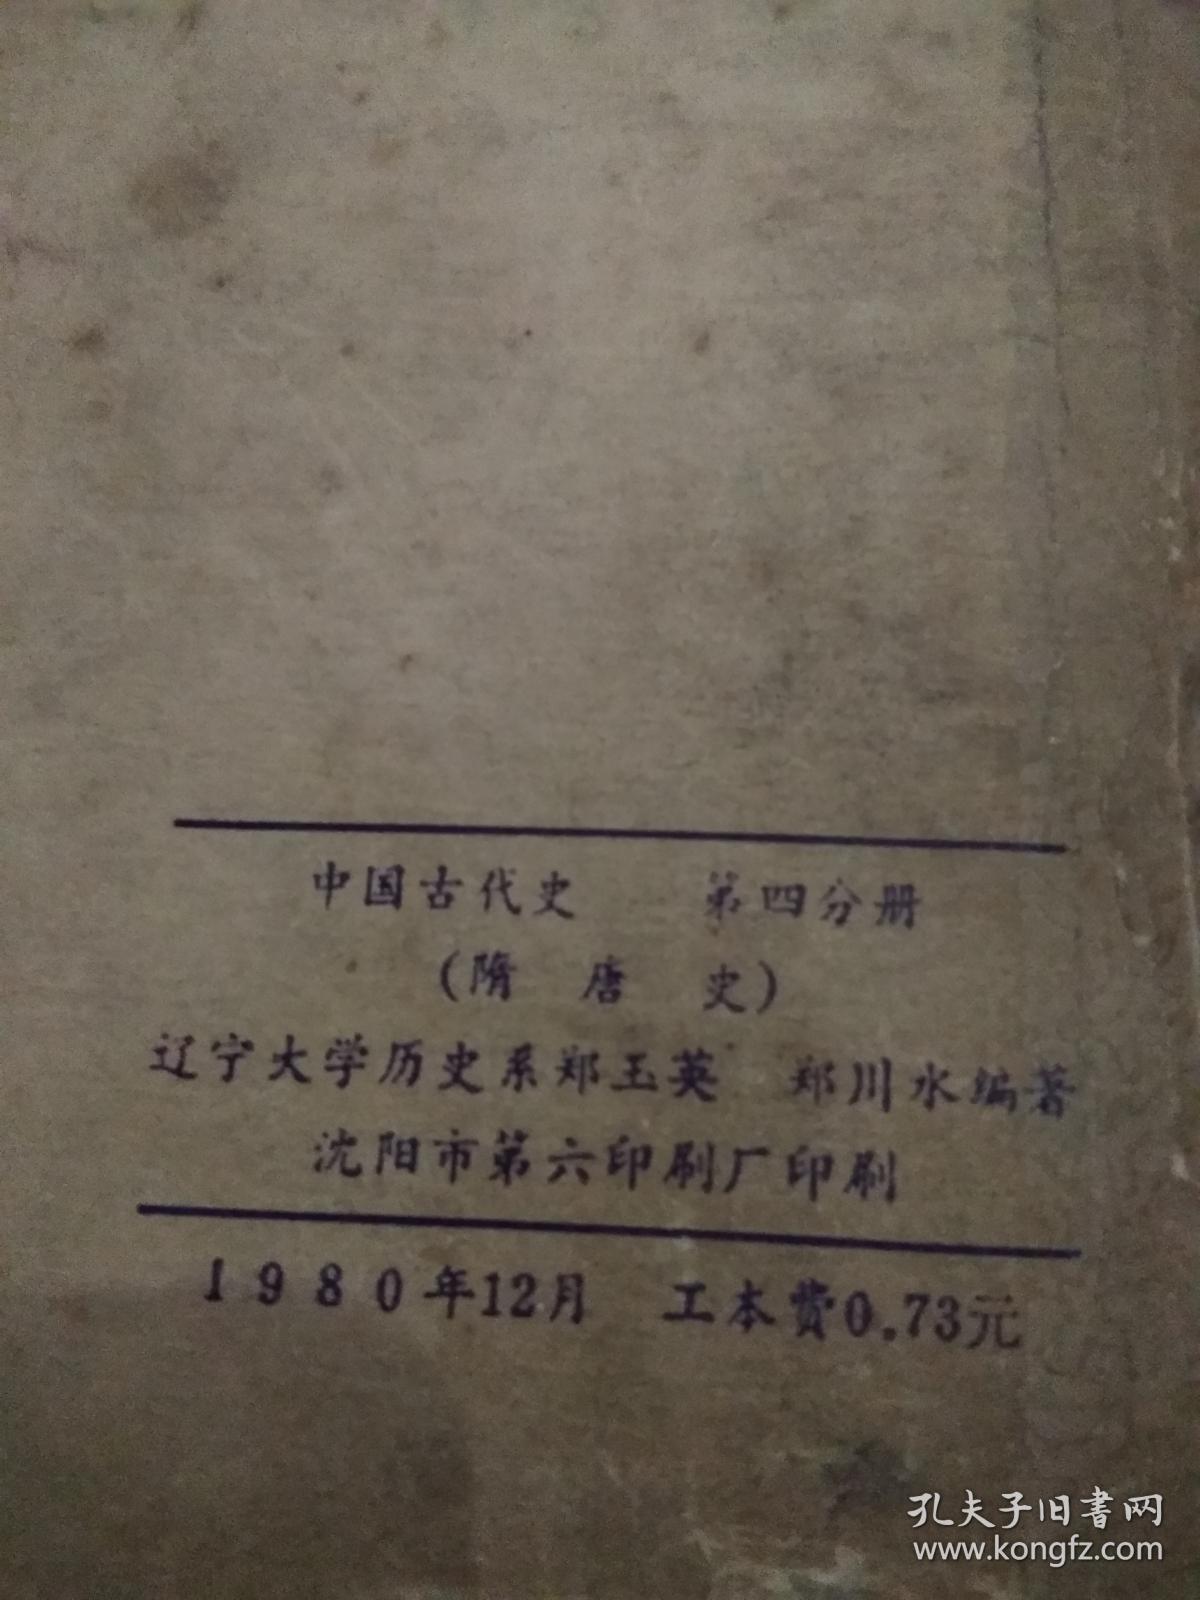 中国古代史 第四分册
(隋 唐 史)
辽宁大学历史系郑玉英 郑川水编著
沈阳市第六印刷厂印刷
1980年12月 工本费0.73元
孔夫子旧书网
www.kongfz.com